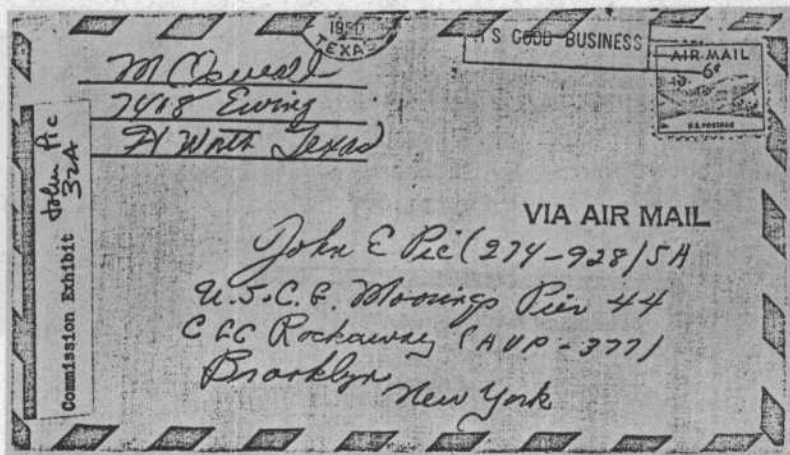 1950
TEXAS
IT'S GOOD BUSINESS
AIR MAIL
6¢
U.S. POSTAGE
M Oswald
7408 Ewing
Ft Worth Texas
Commission Exhibit
John Pic
32A
VIA AIR MAIL
John E Pic (274-928) SA
U.S.C.G. Moorings Pier 44
CGC Rockaway (AVP-377)
Brooklyn
New York